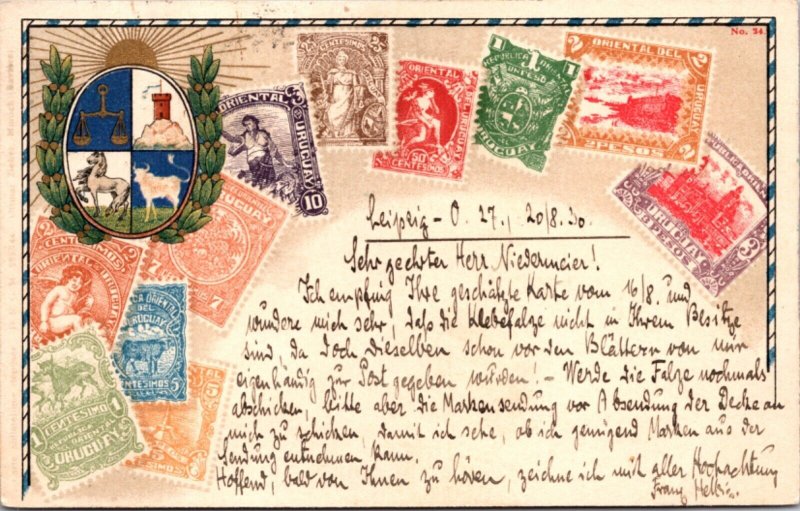 No. 34.
CENTESIMOS
ORIENTAL
URUGUAY
10
ORIENTAL
DEL URUGUAY
50
CENTESIMOS
1 1
REPUBLICA
UN PESO
URUGUAY
2 ORIENTAL DEL
URUGUAY
2 PESOS 2
URUGUAY
PESO
3
2 CENTESIMOS
ORIENTAL
URUGUAY
URUGUAY
7 7
ORIENTAL
DEL
URUGUAY
CENTESIMOS 5
1 CENTESIMO 1
REPUBLICA
ORIENTAL
URUGUAY
5
Leipzig - O. 27., 20/8.30.
Sehr geehrter Herr Niedermeier!
Ich empfing Ihre geschätzte Karte vom 16/8. und
wundere mich sehr, daß die Klebefalze nicht in Ihrem Besitze
sind, da doch dieselben schon vor den Blättern von mir
eigenhändig zur Post gegeben wurden! - Werde die Falze nochmals
abschicken, bitte aber die Markensendung vor Absendung der Decke an
mich zu schicken, damit ich sehe, ob ich genügend Marken aus der
Sendung entnehmen kann.
Hoffend, bald von Ihnen zu hören, zeichne ich mit aller Hochachtung
Franz